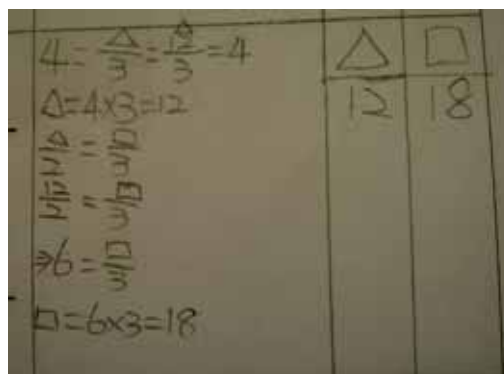 4 = △/3 = 12/3 = 4
△ = 4×3 = 12
△/2 = □/3
12/2 = □/3
⇒ 6 = □/3
□ = 6×3 = 18
△ □
12 18